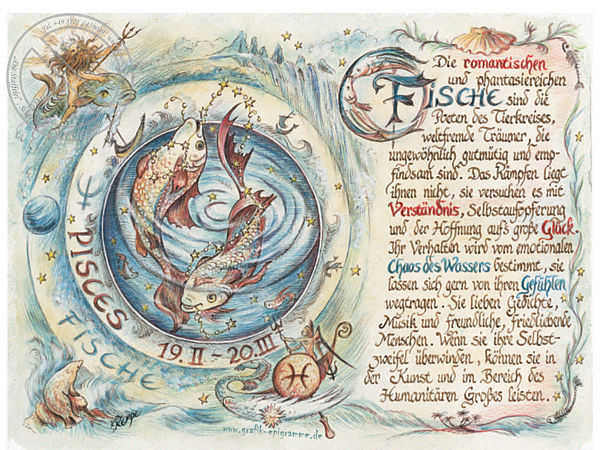 PISCES
FISCHE
19.II - 20.III
www.grafik-epigramme.de
Die romantischen
und phantasiereichen
FISCHE sind die
Poeten des Tierkreises,
weltfremde Träumer, die
ungewöhnlich gutmütig und emp-
findsam sind. Das Kämpfen liegt
ihnen nicht, sie versuchen es mit
Verständnis, Selbstaufopferung
und der Hoffnung auf großes Glück.
Ihr Verhalten wird vom emotionalen
Chaos des Wassers bestimmt, sie
lassen sich gern von ihren Gefühlen
wegtragen. Sie lieben Gedichte,
Musik und freundliche, friedliebende
Menschen. Wenn sie ihre Selbst-
zweifel überwinden, können sie in
der Kunst und im Bereich des
Humanitären Großes leisten.